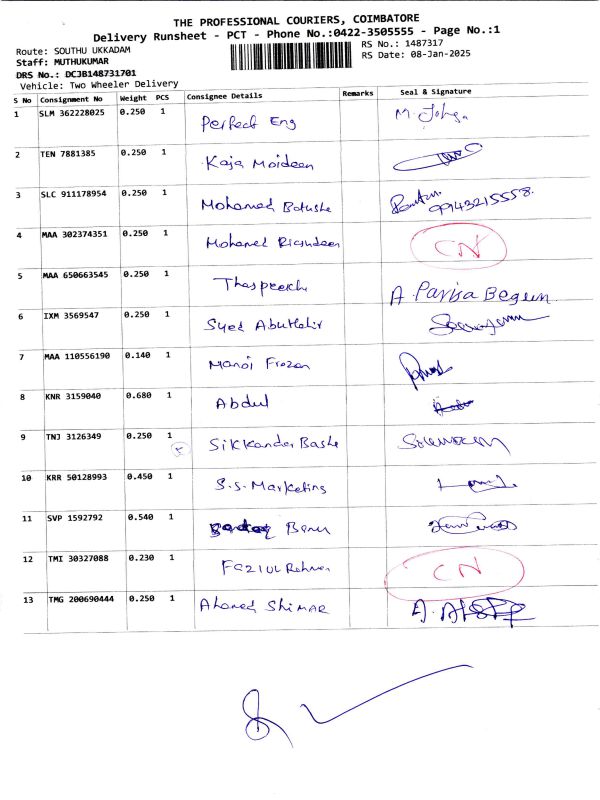 THE PROFESSIONAL COURIERS, COIMBATORE
Delivery Runsheet - PCT - Phone No.:0422-3505555 - Page No.:1
Route: SOUTHU UKKADAM RS No.: 1487317
Staff: MUTHUKUMAR RS Date: 08-Jan-2025
DRS No.: DCJB148731701
Vehicle: Two Wheeler Delivery
S No Consignment No Weight PCS Consignee Details Remarks Seal & Signature
1 SLM 362228025 0.250 1 Perfect Eng M.
2 TEN 7881385 0.250 1 Kaja Moideen
3 SLC 911178954 0.250 1 Mohamed Batusha 9943215558.
4 MAA 302374351 0.250 1 Mohamed CN
5 MAA 650663545 0.250 1 A Parisa Begum
6 IXM 3569547 0.250 1 Syed
7 MAA 110556190 0.140 1 Manoi Frozen
8 KNR 3159040 0.680 1 Abdul
9 TNJ 3126349 0.250 1 Sikkander Basha
10 KRR 50128993 0.450 1 S.S. Marketing
11 SVP 1592792 0.540 1 Banu
12 TMI 30327088 0.230 1 Fazlul Rehman CN
13 TMG 200690444 0.250 1 Ahamed Shimar